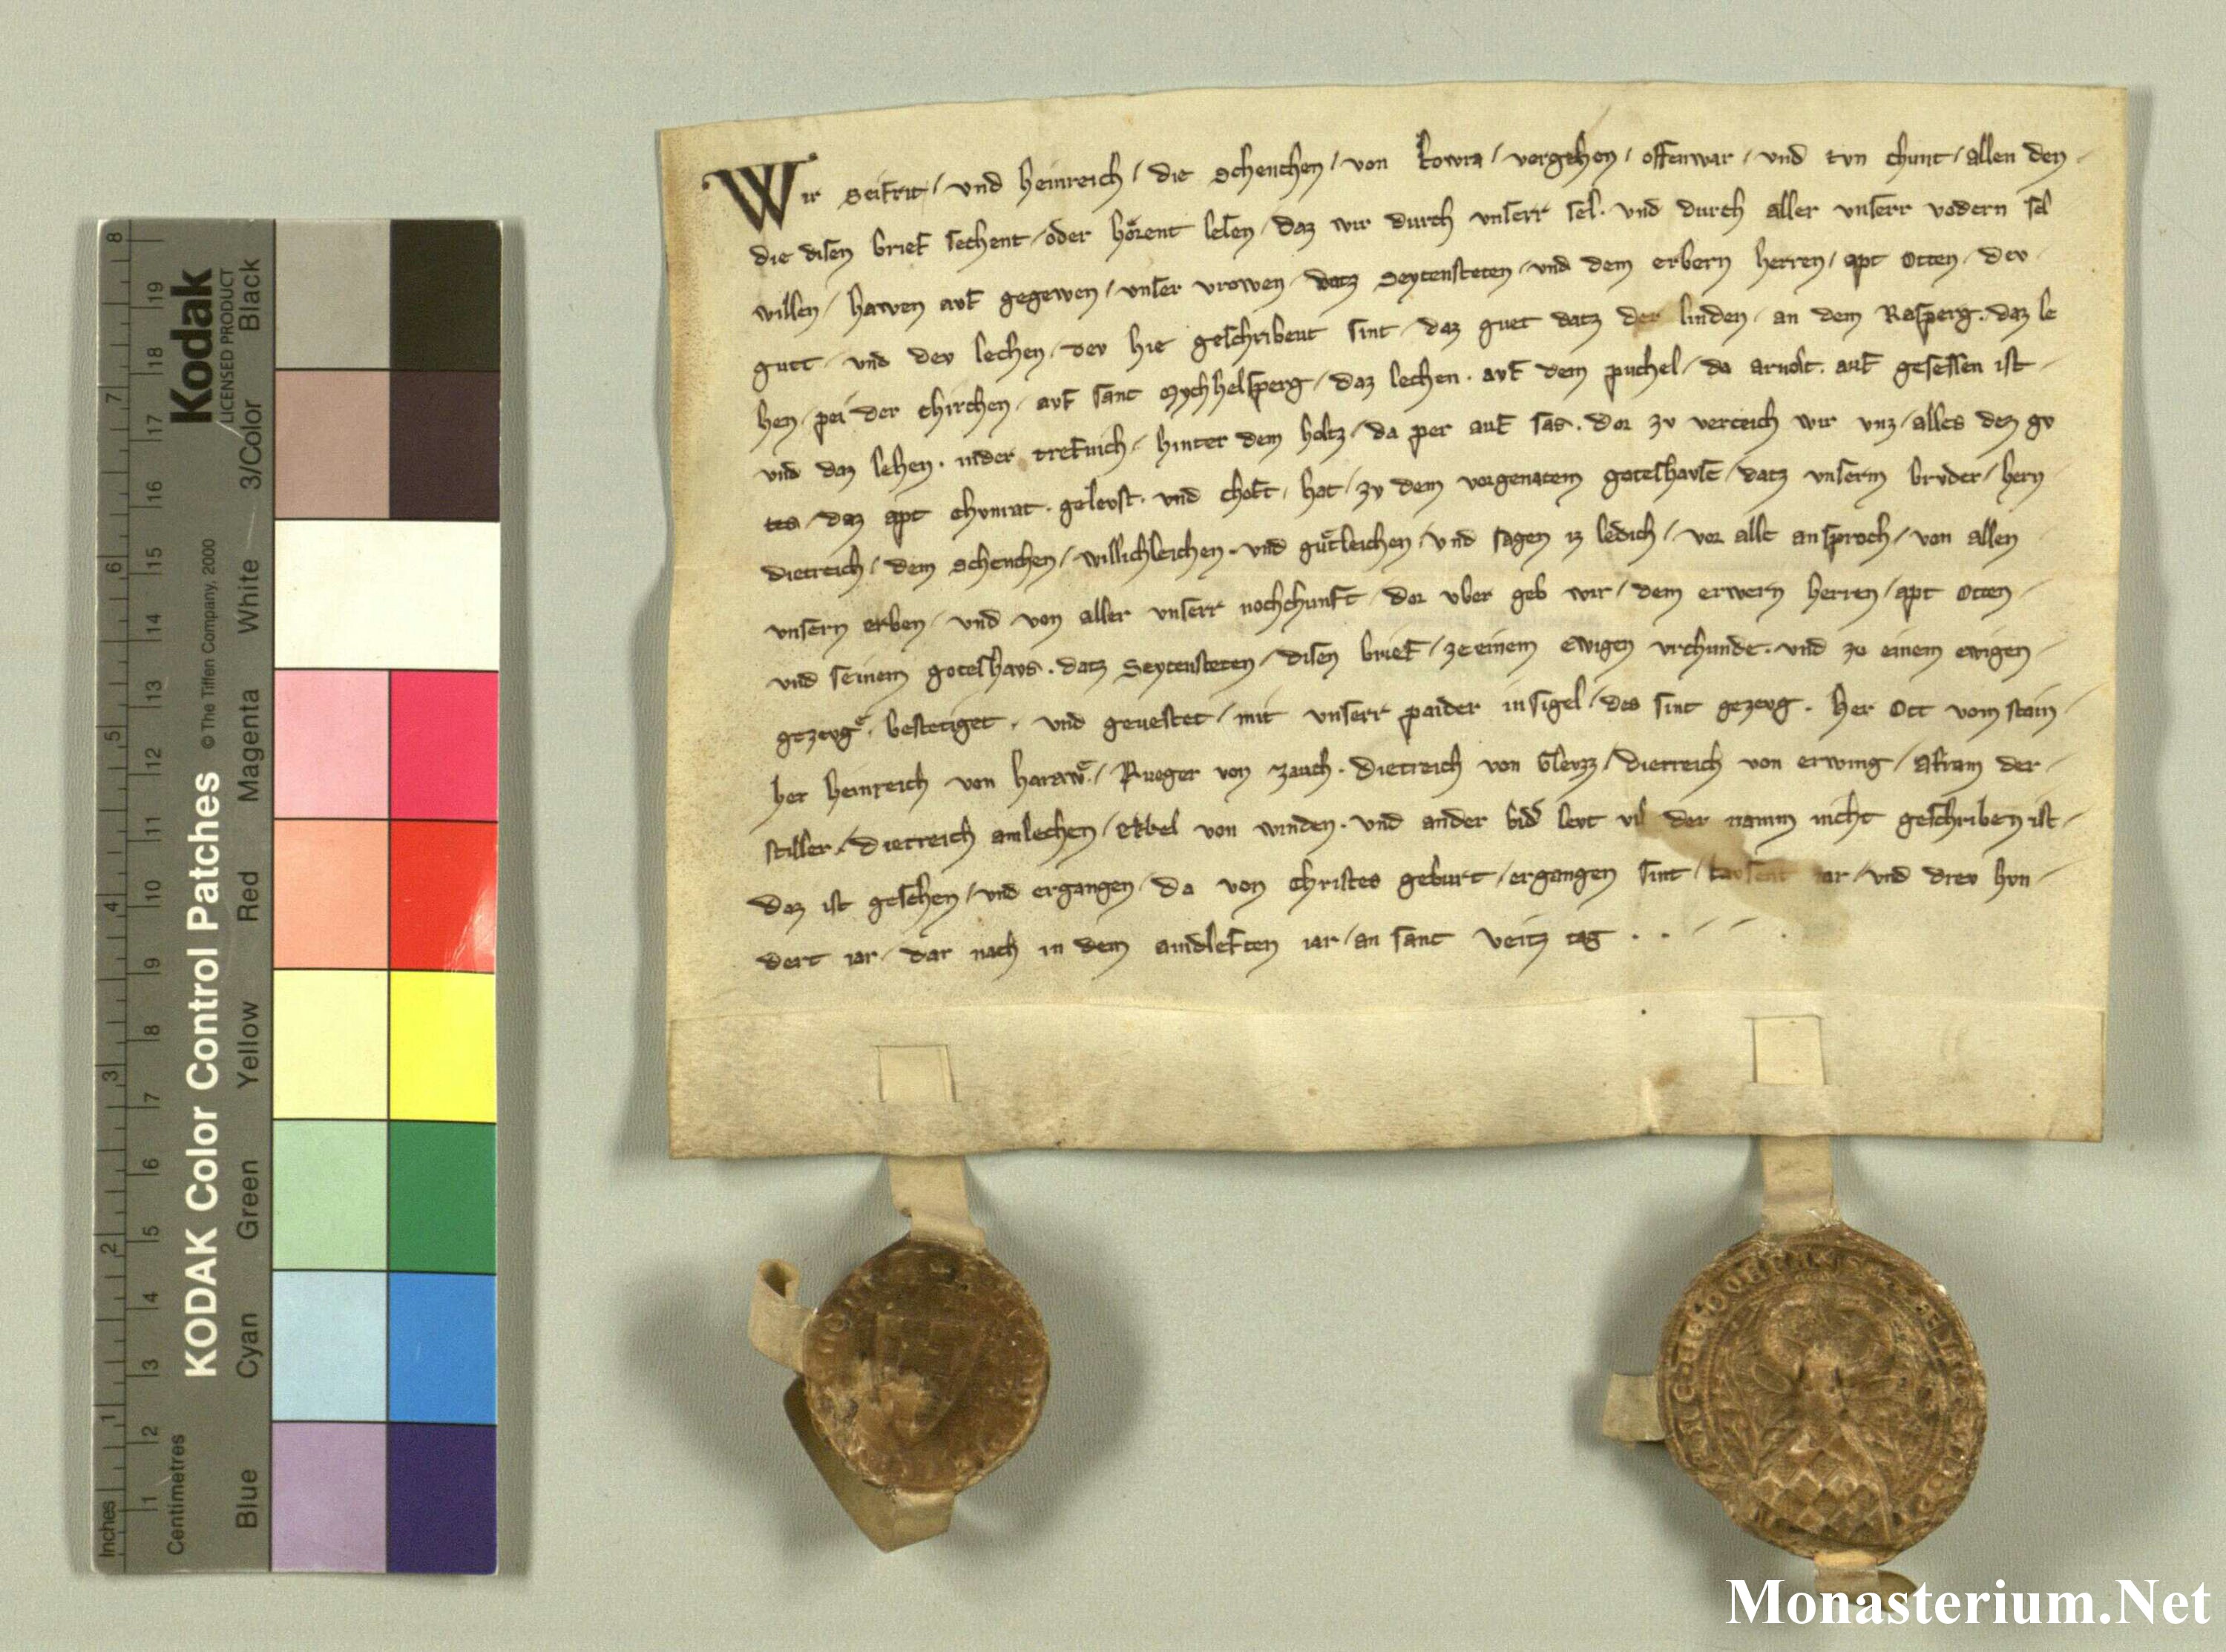 Wir Seifrit / und heinreich / die schenchen / von / vergehen / offenwar / und tvn chunt / allen den
die disen brief sechent / oder hörent lesen / daz wir durch unserr sel · und durch aller unserr vodern sel
willen / hawen avf gegewen / unser vrowen / datz Seytensteten / und dem erbern herren / apt Otten / dev
gutt / und dev lechen / dev hie geschribent sint / daz guet datz der linden / an dem Rasperg · daz le
hen / pei der chirchen / avf sant Mychhelsperg / daz lechen · avf dem puchel / da arnolt · auf gesessen ist
und daz lehen · nider trefnich / hinter dem holtz / da per auf sas · dor zv verceich wir vnz / alles dez gv
tes / daz apt chvnrat · gelevst · und choft / hat / zv dem vorgenatem goteshavse / datz unserm brvder / hern
dietreich / dem schenchen / willichleichen · und gütleichen / und sagen iz ledich / vor alle ansproch / von allen
unsern erben / und von aller unserr nochchunft / dor vber geb wir / dem erwern herren / apt Otten
und seinem goteshavs · datz Seytensteten / disen brief / ze einem ewigen vrchunde · und zu einem ewigen
gezevge · bestetiget · und gevestet / mit unserr paider insigel / des sint gezevg · her Ott vom stain
her heinreich von / Rueger von zauch · dietreich von / dietreich von erwing / afram der
stiller / dietreich amlechen / von winden · und ander bid levt vil der namm nicht geschriben ist
daz ist geschen / und ergangen / da von christes geburt / ergangen sint / tavsent iar / und drev hvn
dert iar / dar nach in dem aindleften iar / an sant veitz tag
Kodak
LICENSED PRODUCT
KODAK Color Control Patches © The Tiffen Company, 2000
Blue Cyan Green Yellow Red Magenta White 3/Color Black
Inches 1 2 3 4 5 6 7 8
Centimetres 1 2 3 4 5 6 7 8 9 10 11 12 13 14 15 16 17 18 19
Monasterium.Net